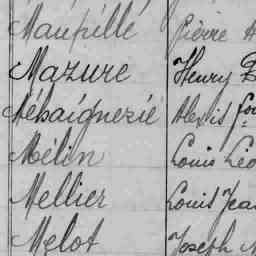 Maupillé Pierre
Mazure Henry
Mébaignerie Alexis
Mélin Louis Léo
Mellier Louis Jea
Melot Joseph